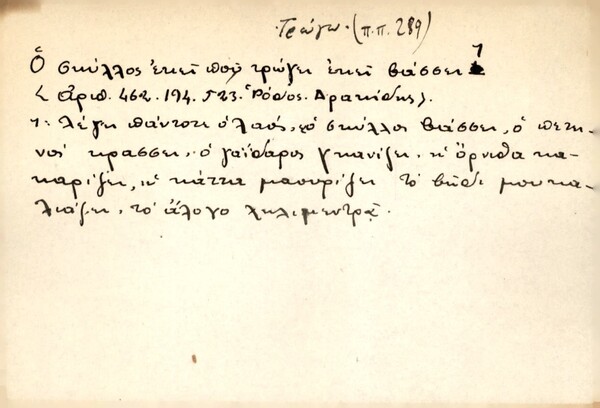 Τρώγω. (π.π. 289)
Ὁ σκύλλος ἐκεῖ ποῦ τρώγει ἐκεῖ βάσσει 1
<ἀριθ. 462. 194. 523. Ῥόδος. Δρακίδης>.
1: λέγει πάντοτε ὁ λαός, ὁ σκύλλος βάσσει, ὁ πετει-
νός κράσσει, ὁ γαΐδαρος γκανίζει, ἡ ὄρνιθα κα-
καρίζει, ἡ κάττα μαουρίζει τὸ βῴδι μουκα-
λιάζει, τὸ ἄλογο χιλιμεντρᾷ.